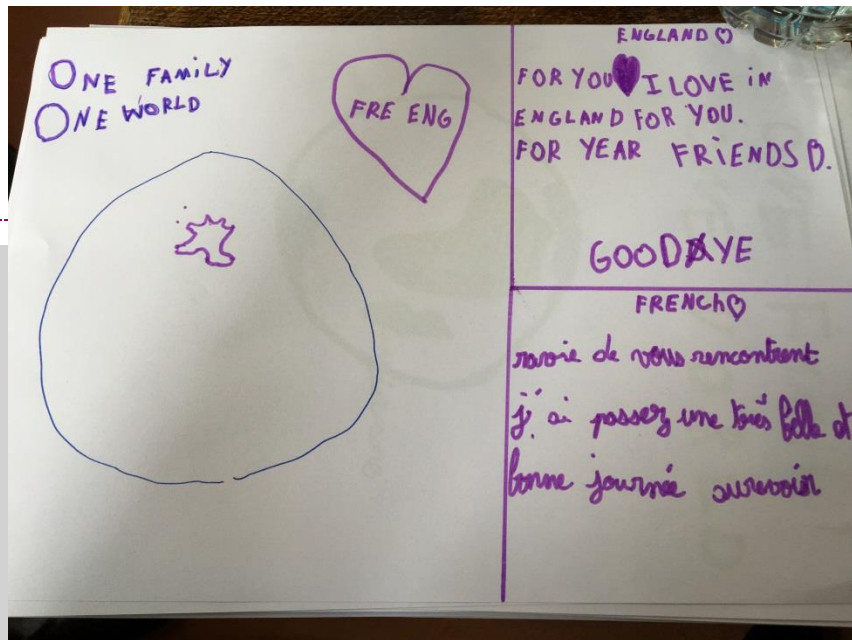 ONE FAMILY
ONE WORLD
FRE ENG
ENGLAND
FOR YOU I LOVE iN
ENGLAND FOR YOU.
FOR YEAR FRiENDS B.
GOODAYE
FRENCh
ravoie de vous rencontrent
j'ai passez une très belle et
bonne journée aurevoir